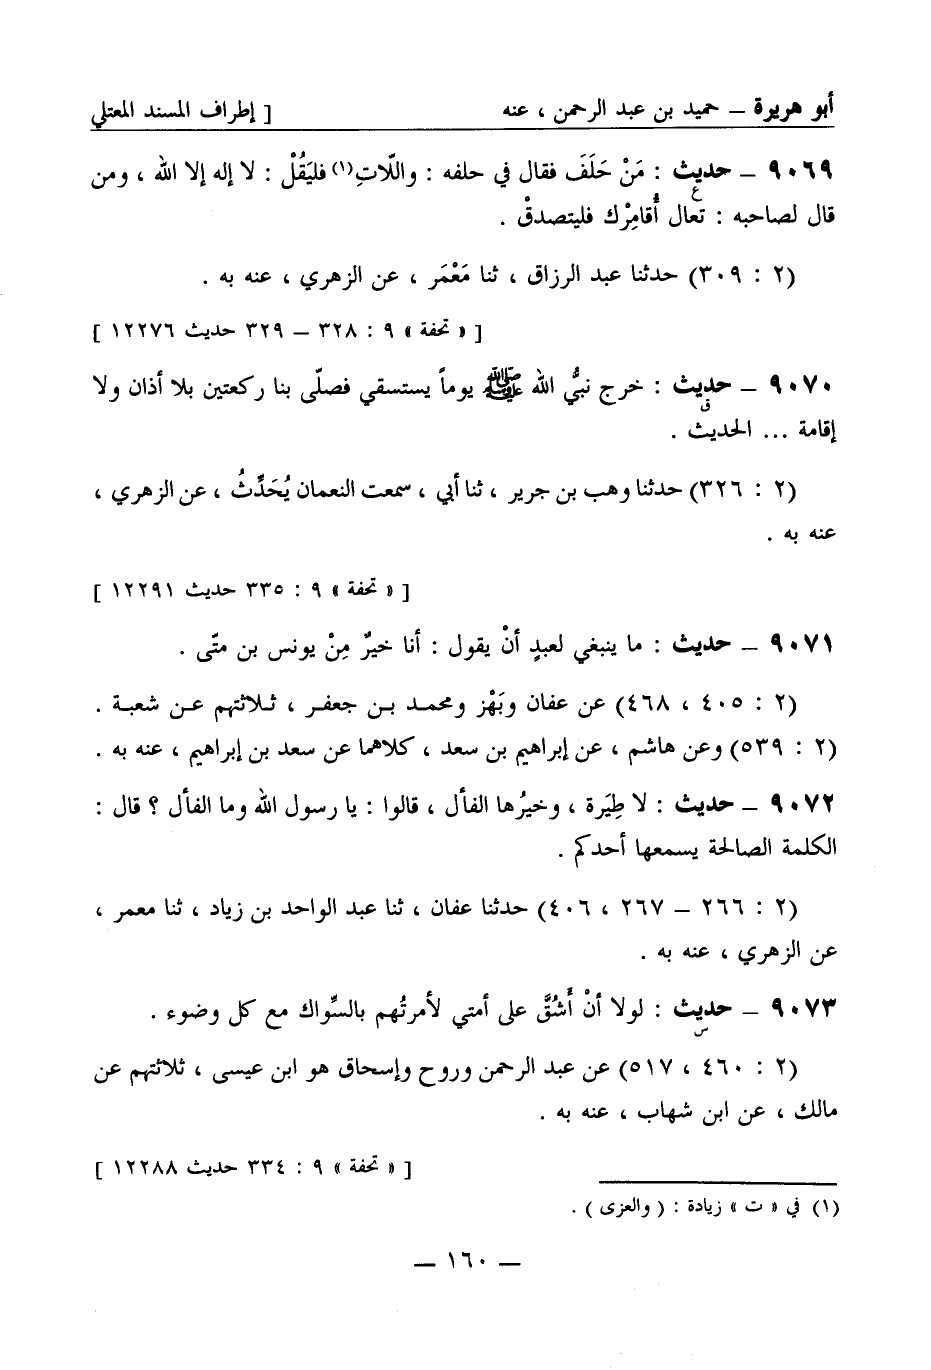 أبو هريرة – حميد بن عبد الرحمن ، عنه [ إطراف المسند المعتلي
٩٠٦٩ – حديث : مَنْ حَلَفَ فقال في حلفه : واللّاتِ(١) فليَقُلْ : لا إله إلا الله ، ومن
ع
قال لصاحبه : تعال أُقامِرْك فليتصدقْ .
(٢ : ٣٠٩) حدثنا عبد الرزاق ، ثنا مَعْمَر ، عن الزهري ، عنه به .
[ « تحفة » ٩ : ٣٢٨ – ٣٢٩ حديث ١٢٢٧٦ ]
٩٠٧٠ – حديث : خرج نبيُّ الله ﷺ يوماً يستسقي فصلّى بنا ركعتين بلا أذان ولا
ق
إقامة ... الحديث .
(٢ : ٣٢٦) حدثنا وهب بن جرير ، ثنا أبي ، سمعت النعمان يُحَدِّثُ ، عن الزهري ،
عنه به .
[ « تحفة » ٩ : ٣٣٥ حديث ١٢٢٩١ ]
٩٠٧١ – حديث : ما ينبغي لعبدٍ أنْ يقول : أنا خيرٌ مِنْ يونس بن متّى .
(٢ : ٤٠٥ ، ٤٦٨) عن عفان وبَهْز ومحمد بن جعفر ، ثلاثتهم عن شعبة .
(٢ : ٥٣٩) وعن هاشم ، عن إبراهيم بن سعد ، كلاهما عن سعد بن إبراهيم ، عنه به .
٩٠٧٢ – حديث : لا طِيَرة ، وخيرُها الفأل ، قالوا : يا رسول الله وما الفأل ؟ قال :
الكلمة الصالحة يسمعها أحدكم .
(٢ : ٢٦٦ – ٢٦٧ ، ٤٠٦) حدثنا عفان ، ثنا عبد الواحد بن زياد ، ثنا معمر ،
عن الزهري ، عنه به .
٩٠٧٣ – حديث : لولا أنْ أَشُقَّ على أمتي لأمرتُهم بالسِّواك مع كل وضوء .
س
(٢ : ٤٦٠ ، ٥١٧) عن عبد الرحمن وروح وإسحاق هو ابن عيسى ، ثلاثتهم عن
مالك ، عن ابن شهاب ، عنه به .
[ « تحفة » ٩ : ٣٣٤ حديث ١٢٢٨٨ ]
(١) في « ت » زيادة : ( والعزى ) .
– ١٦٠ –